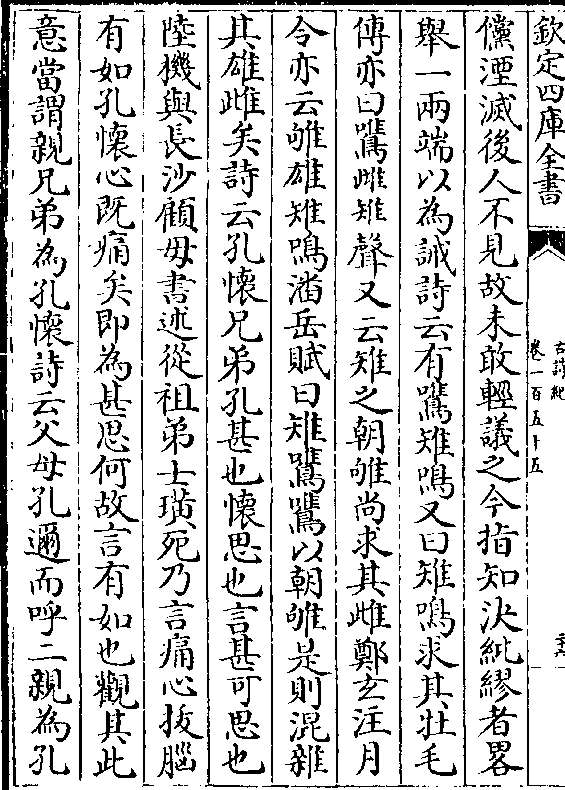 欽定四庫全書
古詩紀
卷一百五十五
儻湮滅後人不見故未敢輕議之今指知決紕繆者畧
舉一兩端以為誡詩云有鷕雉鳴又曰雉鳴求其牡毛
傳亦曰鷕雌雉聲又云雉之朝雊尚求其雌鄭玄注月
令亦云雊雄雉鳴潘岳賦曰雉鷕鷕以朝雊是則混雜
其雄雌矣詩云孔懷兄弟孔甚也懷思也言甚可思也
陸機與長沙顧母書述從祖弟士璜死乃言痛心拔腦
有如孔懷心既痛矣即為甚思何故言有如也觀其此
意當謂親兄弟為孔懷詩云父母孔邇而呼二親為孔